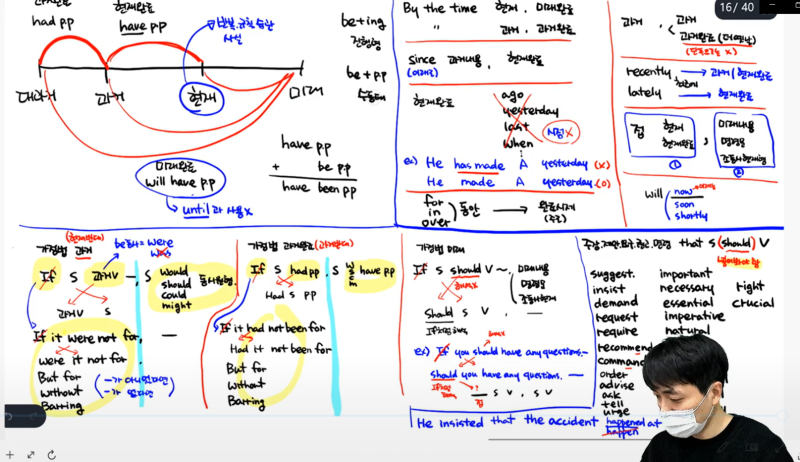 had pp
have pp
대과거
과거
현재
미래
미래완료
will have pp
until과 사용 x
have pp
+ be pp
have been pp
be+ing
진행형
be+pp
수동태
By the time 현재, 미래완료
" 과거, 과거완료
since 과거내용, 현재완료
현재완료
ago
yesterday
last
when
시점 x
ex) He has made A yesterday (x)
He made A yesterday (o)
for
in
over
동안
완료시제
16 / 40
과거
과거
과거완료
recently → 과거/현재완료
lately → 현재완료
현재
현재완료
①
미래내용
명령문
②
will
now
soon
shortly
가정법 과거
be동사 = were
was
If S 과거V ~, S
would
should
could
might
동사원형
과거V S
If it were not for, —
were it not for
But for
without
Barring
가정법 과거완료
If S had pp, S have pp
Had S pp
If it had not been for
Had it not been for
But for
without
Barring
가정법 미래
If S should V ~,
미래내용
명령문
Should S V , —
ex) If you should have any questions, —
should you have any questions, —
S V , S V
that S (should) V
suggest
insist
demand
request
require
recommend
command
order
advise
ask
tell
urge
important
necessary
essential
imperative
natural
right
crucial
He insisted that the accident happened at
happen